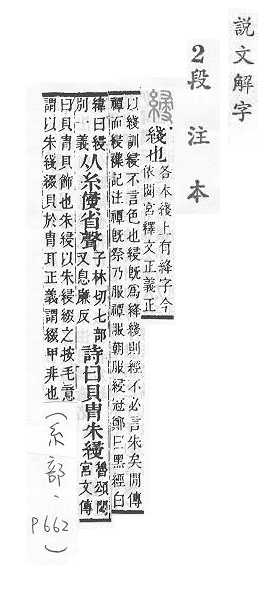 説文解字
2段注本
綅
綫也 各本綫上有絳字今
依閟宮釋文正義正
以綫訓綅不言色也綅旣爲絳綫則經不必言朱矣閒傳
禫而綅記注禫旣祭乃服禫服朝服綅冠鄭曰黑經白
緯曰綅
別一義
从糸侵省聲 子林切七部
又息廉反
詩曰貝冑朱綅 魯頌閟
宮文傳
曰貝冑貝飾也朱綅以朱綅綴之按毛意
謂以朱綫綴貝於冑耳正義謂綴甲非也
(糸部、P662)